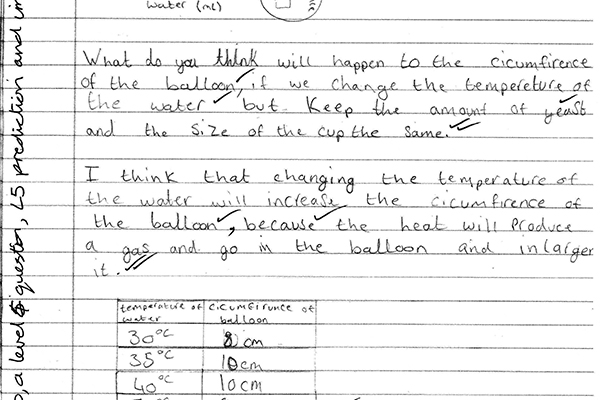 water (ml)
What do you think will happen to the cicumfirence
of the balloon, if we change the temperature of
the water but keep the amount of yeast
and the size of the cup the same.
I think that changing the temperature of
the water will increase the cicumfirence of
the balloon, because the heat will produce
a gas and go in the balloon and inlarger
it.
temperature of cicumfirunce of
water balloon
30°C 8 cm
35°C 10cm
40°C 10cm
a level question, L5 prediction and